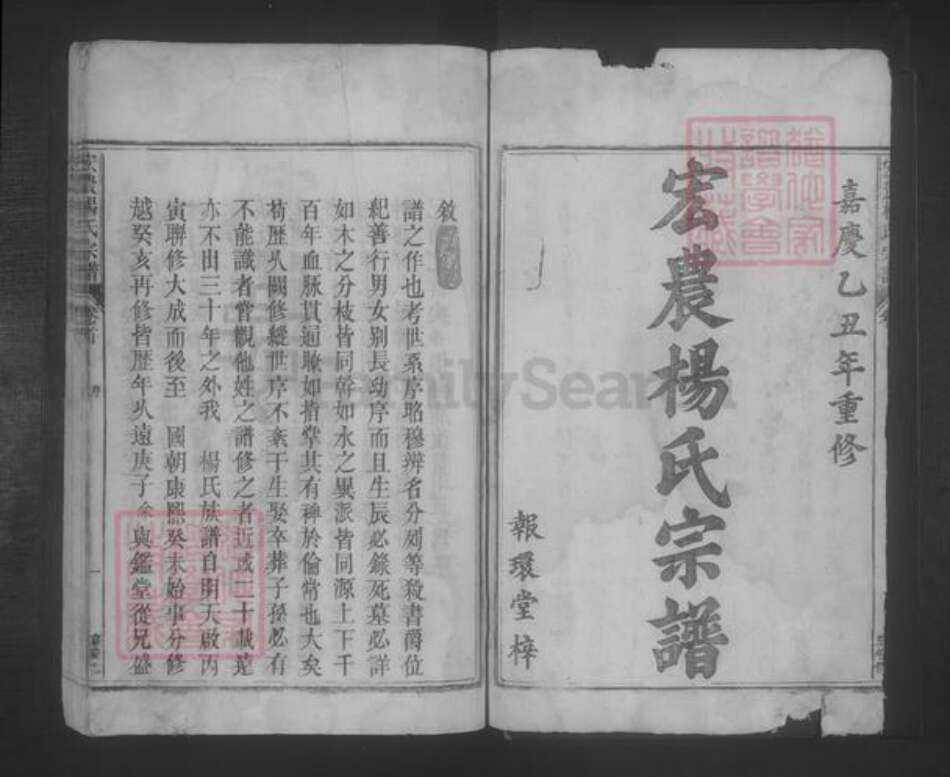 嘉慶乙丑年重修
宏農楊氏宗譜
報環堂梓
敘
譜之作也考世系序昭穆辨名分列等殺書爵位
紀善行男女別長幼序而且生辰必錄死墓必詳
如木之分枝皆同幹如水之異派皆同源上下千
百年血脉貫通瞭如指掌其有裨於倫常也大矣
茍歷久闕修縱世序不紊于生娶卒葬子孫必有
不能識者嘗觀他姓之譜修之者近或二十載遠
亦不出三十年之外我 楊氏族譜自明天啟丙
寅聯修大成而後至 國朝康熙癸未始事分修
越癸亥再修皆歷年久遠庚子余與鑑堂從兄盛
FamilySearch